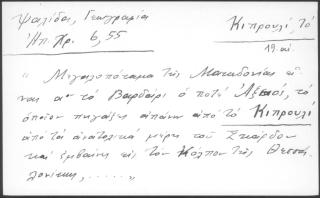 Ψαλίδας, Γεωγραφία
Κιπρουλί, τό
Ἠπ. Χρ. 6, 55
19. αἰ.
" Μεγαλοπόταμα τῆς Μακεδονίας εἶ-
ναι αον τό Βαρδάρι ὁ ποτέ Ἀξιός, τό
ὁποῖον πηγάζει ἀπάνω ἀπό τό Κιπρουλί
ἀπό τά ἀνατολικά μέρη τοῦ Σκάρδου
καί ἐμβαίνει εἰς τόν Κόλπον τῆς Θεσσα
λονίκης, ......„